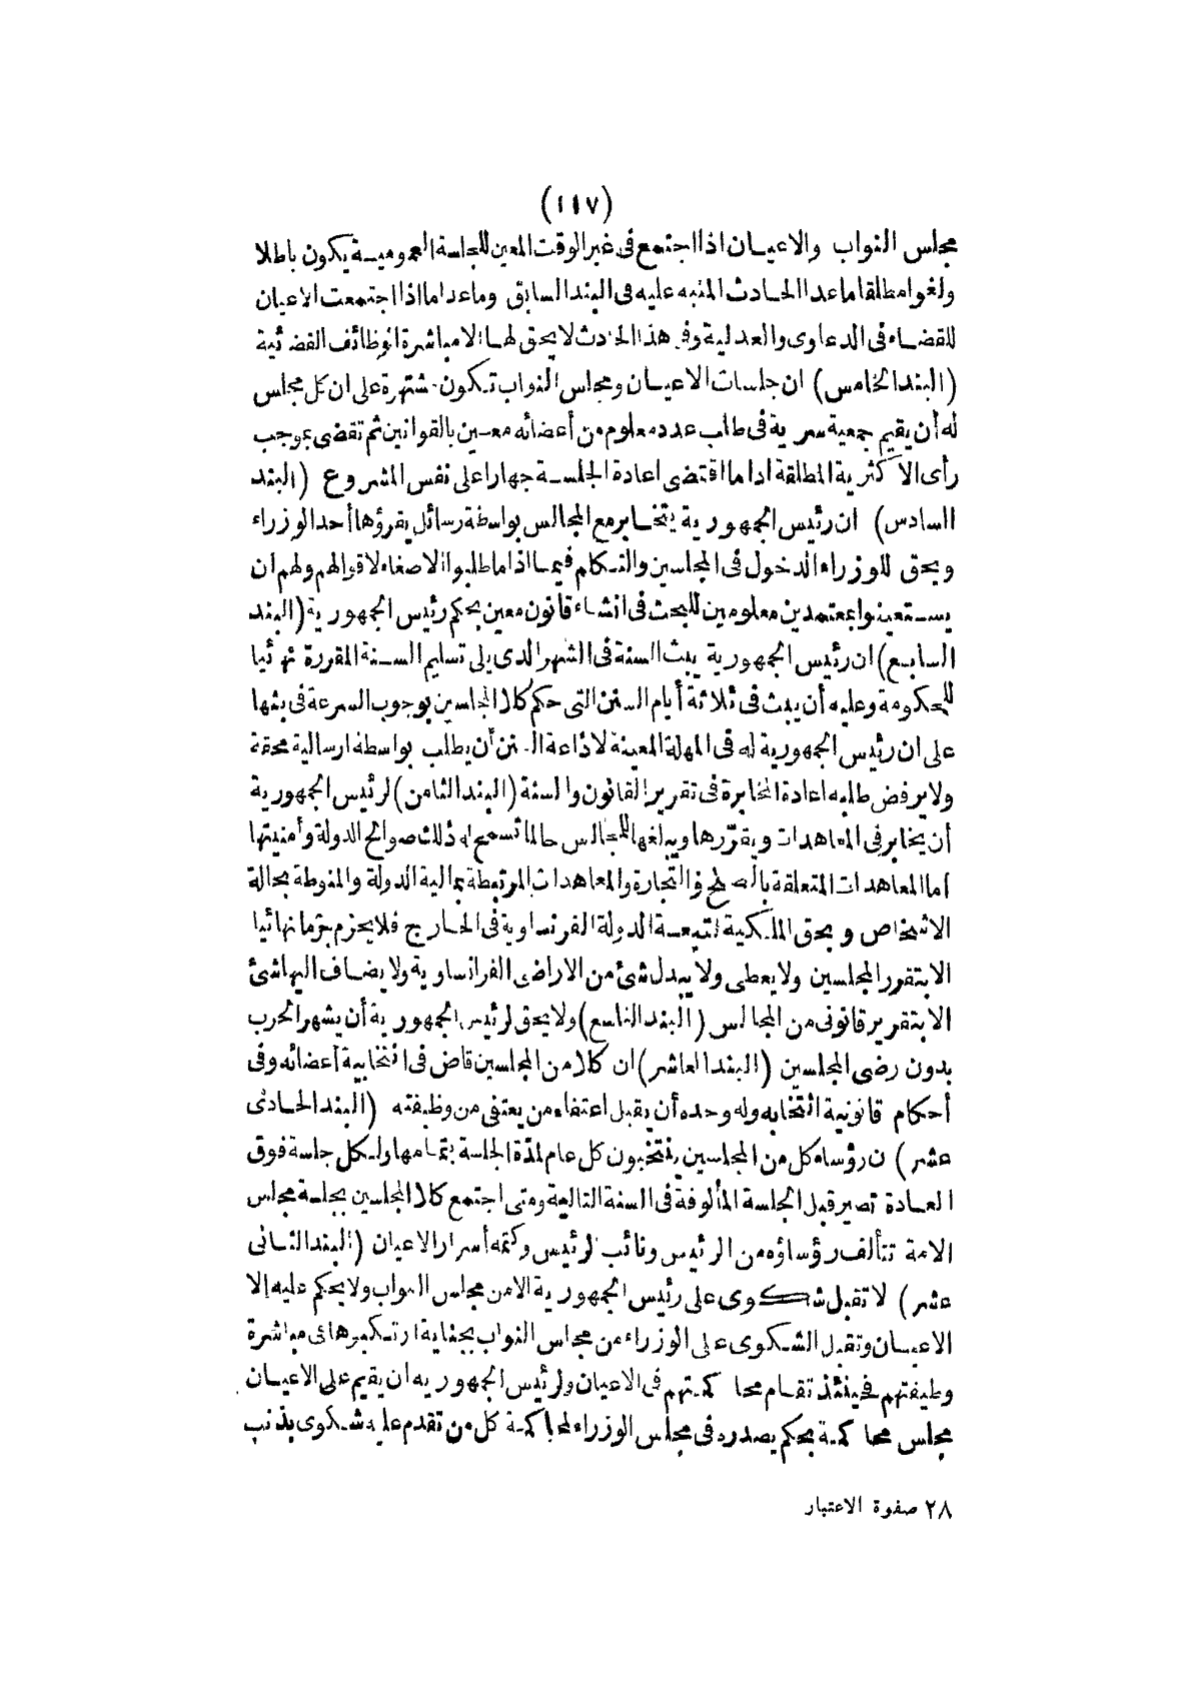 (١١٧)
مجلس النواب والاعيان اذا اجتمع فى غير الوقت المعين للجلسة العمومية يكون باطلا
ولغوا مطلقا ما عدا الحادث المنبه عليه فى البند السابق وما عدا ما اذا اجتمعت الاعيان
للقضاء فى الدعاوى والعدلية وفى هذا الحادث لا يحق لها الا مباشرة الوظائف القضائية
(البند الخامس) ان جلسات الاعيان ومجلس النواب تكون مشتهرة على ان كل مجلس
له أن يقيم جمعية سرية فى طلب عدد معلوم من أعضائه معين بالقوانين ثم تقضى بموجب
رأى الاكثرية المطلقة اذا ما اقتضى اعادة الجلسة جهارا على نفس المشروع (البند
السادس) ان رئيس الجمهورية يتخابر مع المجالس بواسطة رسائل يقرؤها أحد الوزراء
ويحق للوزراء الدخول فى المجلسين والتكلم فيها اذا ما طلبوا الاصغاء لاقوالهم ولهم ان
يستعينوا بمعتمدين معلومين للبحث فى انشاء قانون معين بحكم رئيس الجمهورية (البند
السابع) ان رئيس الجمهورية يبث السنة فى الشهر الذى يلى تسليم السنة المقررة نهائيا
للحكومة وعليه أن يبث فى ثلاثة أيام السنن التى حكم كلا المجلسين بوجوب السرعة فى بثها
على ان رئيس الجمهورية له فى المهلة المعينة لاذاعة السنن أن يطلب بواسطة ارسالية محققة
ولا يرفض طلبه اعادة المخابرة فى تقرير القانون والسنة (البند الثامن) لرئيس الجمهورية
أن يخابر فى المعاهدات ويقرّرها ويبلغها للمجالس حالما تسمح له ذلك صوالح الدولة وأمنيتها
اما المعاهدات المتعلقة بالصلح والتجارة والمعاهدات المرتبطة بمالية الدولة والمنوطة بحالة
الاشخاص وبحق الملكية لتبعة الدولة الفرنساوية فى الخارج فلا يجزم جزما نهائيا
الا بتقرير المجلسين ولا يعطى ولا يبدل شئ من الاراضى الفرانساوية ولا يضاف اليها شئ
الا بتقرير قانونى من المجالس (البند التاسع) ولا يحق لرئيس الجمهورية أن يشهر الحرب
بدون رضى المجلسين (البند العاشر) ان كلا من المجلسين قاض فى انتخابية أعضائه وفى
أحكام قانونية انتخابه وله وحده أن يقبل اعتفاء من يعتفى من وظيفته (البند الحادى
عشر) ن رؤساء كل من المجلسين ينتخبون كل عام لمدّة الجلسة بتمامها ولكل جلسة فوق
العادة تصير قبل الجلسة المألوفة فى السنة التالية ومتى اجتمع كلا المجلسين بجلسة مجلس
الامة تتألف رؤساؤه من الرئيس ونائب الرئيس وكتمة أسرار الاعيان (البند الثانى
عشر) لا تقبل شكوى على رئيس الجمهورية الا من مجلس النواب ولا يحكم عليه إلا
الاعيان وتقبل الشكوى على الوزراء من مجلس النواب بجناية ارتكبوها فى مباشرة
وظيفتهم فحينئذ تقام محاكمتهم فى الاعيان ولرئيس الجمهوريه ان يقيم على الاعيان
مجلس محاكمة بحكم يصدره فى مجلس الوزراء لمحاكمة كل من تقدم عليه شكوى بذنب
٢٨ صفوة الاعتبار